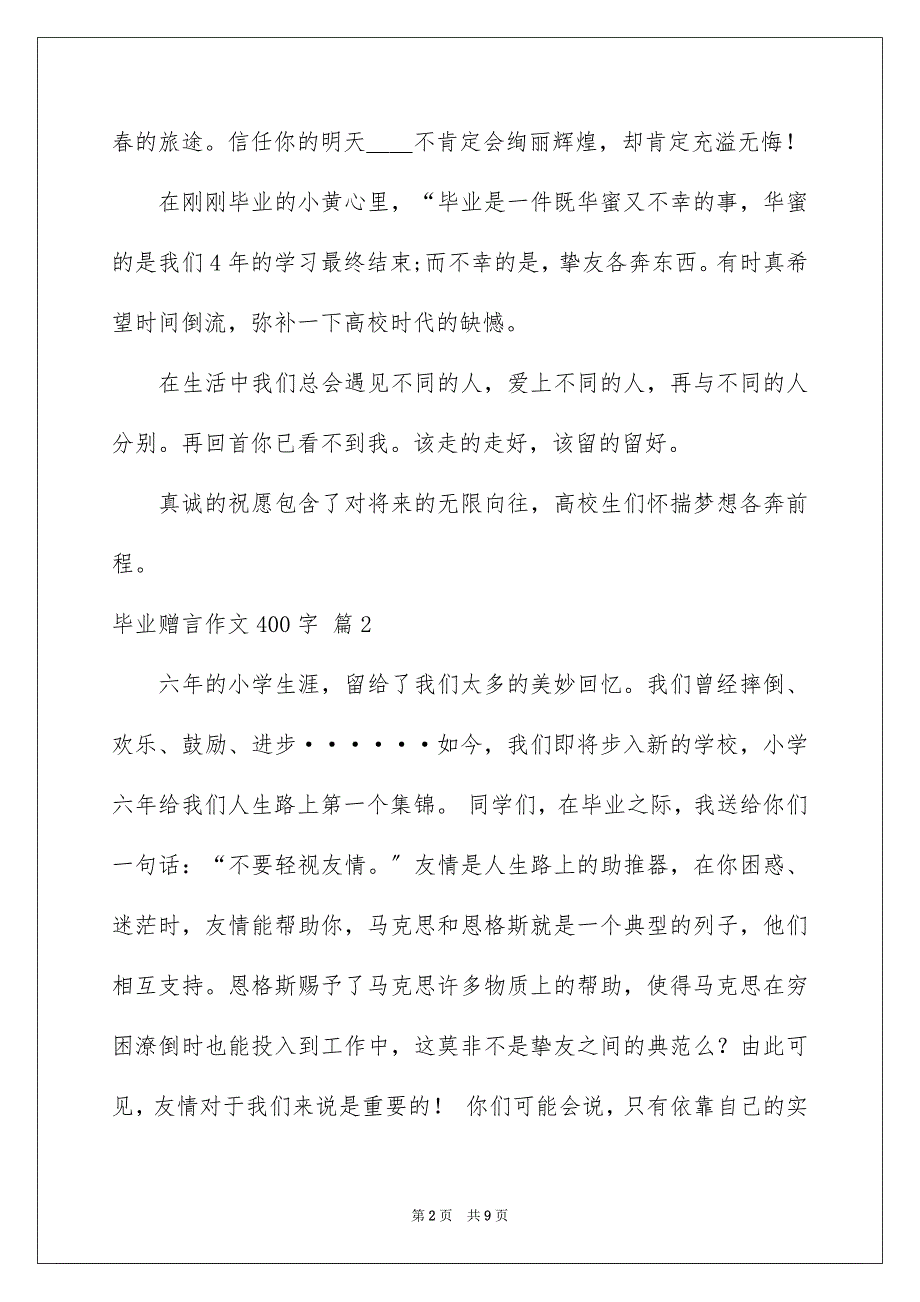 春的旅途。信任你的明天____不肯定会绚丽辉煌，却肯定充溢无悔！
在刚刚毕业的小黄心里，“毕业是一件既华蜜又不幸的事，华蜜
的是我们4年的学习最终结束;而不幸的是，挚友各奔东西。有时真希
望时间倒流，弥补一下高校时代的缺憾。
在生活中我们总会遇见不同的人，爱上不同的人，再与不同的人
分别。再回首你已看不到我。该走的走好，该留的留好。
真诚的祝愿包含了对将来的无限向往，高校生们怀揣梦想各奔前
程。
毕业赠言作文400字 篇2
六年的小学生涯，留给了我们太多的美妙回忆。我们曾经摔倒、
欢乐、鼓励、进步······如今，我们即将步入新的学校，小学
六年给我们人生路上第一个集锦。 同学们，在毕业之际，我送给你们
一句话：“不要轻视友情。〞友情是人生路上的助推器，在你困惑、
迷茫时，友情能帮助你，马克思和恩格斯就是一个典型的列子，他们
相互支持。恩格斯赐予了马克思许多物质上的帮助，使得马克思在穷
困潦倒时也能投入到工作中，这莫非不是挚友之间的典范么？由此可
见，友情对于我们来说是重要的！ 你们可能会说，只有依靠自己的实
第2页 共9页